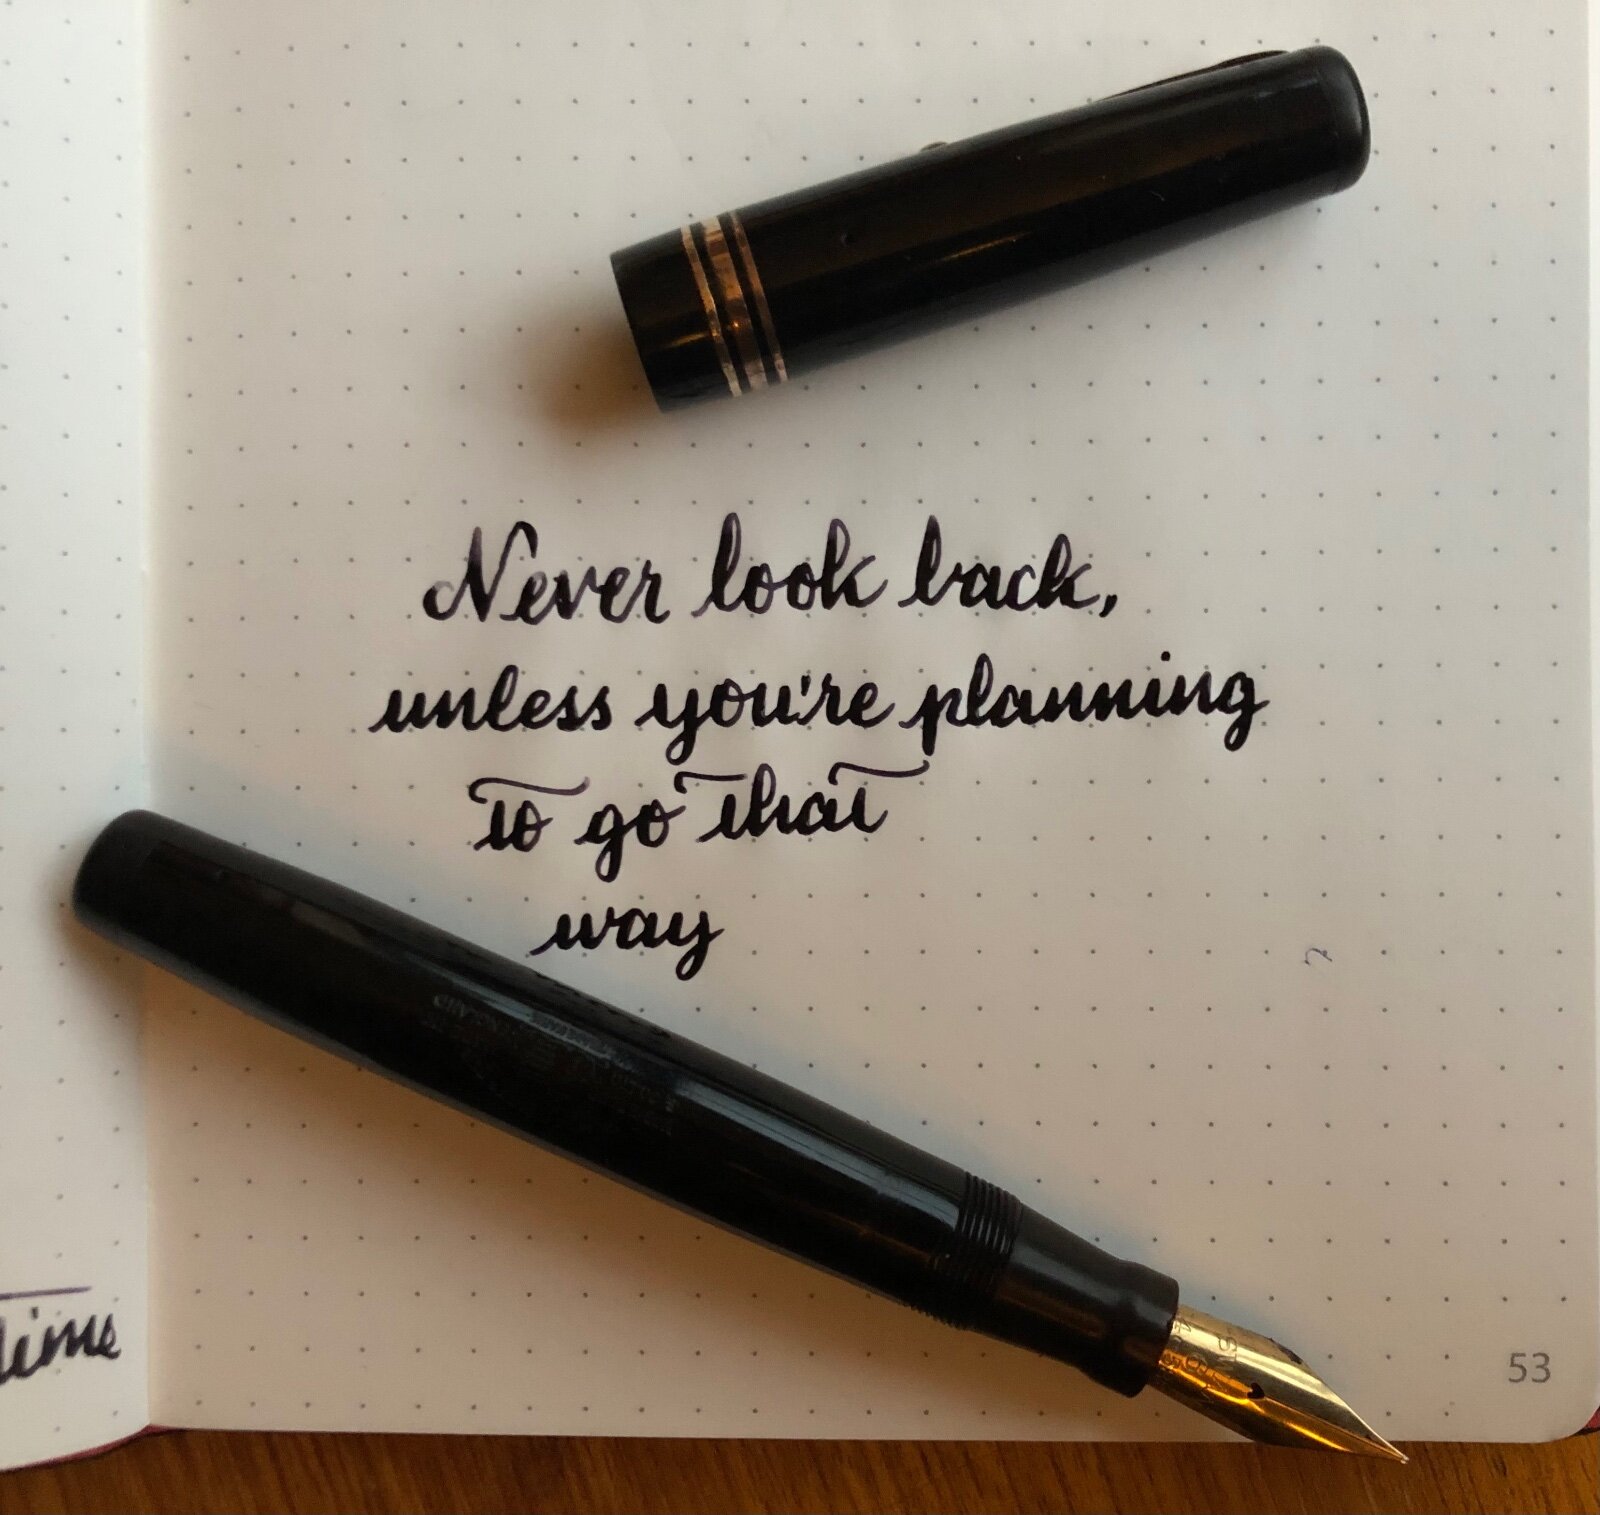 Never look back,
unless you're planning
to go that
way
time
53